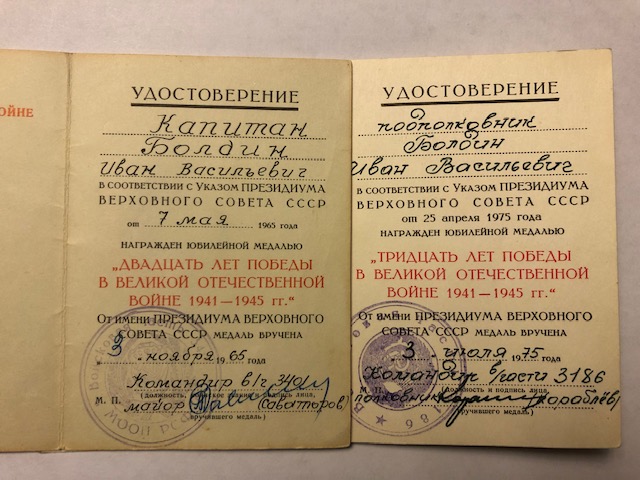 ОЙНЕ
УДОСТОВЕРЕНИЕ
Капитан
Болдин
Иван Васильевич
В СООТВЕТСТВИИ С УКАЗОМ ПРЕЗИДИУМА
ВЕРХОВНОГО СОВЕТА СССР
от 7 мая 1965 года
НАГРАЖДЕН ЮБИЛЕЙНОЙ МЕДАЛЬЮ
„ДВАДЦАТЬ ЛЕТ ПОБЕДЫ
В ВЕЛИКОЙ ОТЕЧЕСТВЕННОЙ
ВОЙНЕ 1941—1945 гг.“
ОТ ИМЕНИ ПРЕЗИДИУМА ВЕРХОВНОГО
СОВЕТА СССР МЕДАЛЬ ВРУЧЕНА
9 ноября 1965 года
Командир в/ч
(должность, воинское звание и подпись лица,
М. П. майор
вручившего медаль)
УДОСТОВЕРЕНИЕ
подполковник
Болдин
Иван Васильевич
В СООТВЕТСТВИИ С УКАЗОМ ПРЕЗИДИУМА
ВЕРХОВНОГО СОВЕТА СССР
от 25 апреля 1975 года
НАГРАЖДЕН ЮБИЛЕЙНОЙ МЕДАЛЬЮ
„ТРИДЦАТЬ ЛЕТ ПОБЕДЫ
В ВЕЛИКОЙ ОТЕЧЕСТВЕННОЙ
ВОЙНЕ 1941—1945 гг.“
ОТ ИМЕНИ ПРЕЗИДИУМА ВЕРХОВНОГО
СОВЕТА СССР МЕДАЛЬ ВРУЧЕНА
3 июля 1975 года
Командир в/части 3186
М. П. (должность и подпись лица,
полковник (Кораблёв)
вручившего медаль)